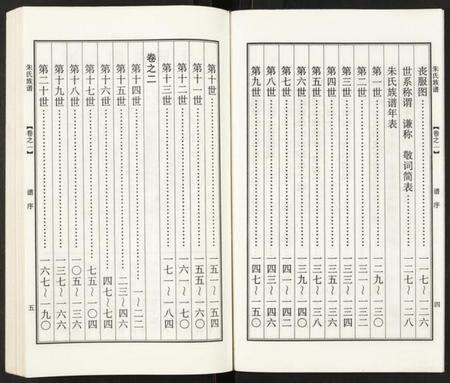 丧服图……一一七~一二六
世系称谓 谦称 敬词简表……一二七~一二八
朱氏族谱年表
第一世……一二九~一三〇
第二世……一三一~一三二
第三世……一三三~一三四
第四世……一三五~一三六
第五世……一三七~一三八
第六世……一三九~一四〇
第七世……一四一~一四二
第八世……一四三~一四六
第九世……一四七~一五〇
朱氏族谱 【卷之一】 谱序 四
第十世……一五一~一五四
第十一世……一五五~一六〇
第十二世……一六一~一七〇
第十三世……一七一~一八四
卷之二
第十四世……一~二二
第十五世……二三~四六
第十六世……四七~七四
第十七世……七五~一〇四
第十八世……一〇五~一三六
第十九世……一三七~一六六
第二十世……一六七~一九〇
朱氏族谱 【卷之一】 谱序 五